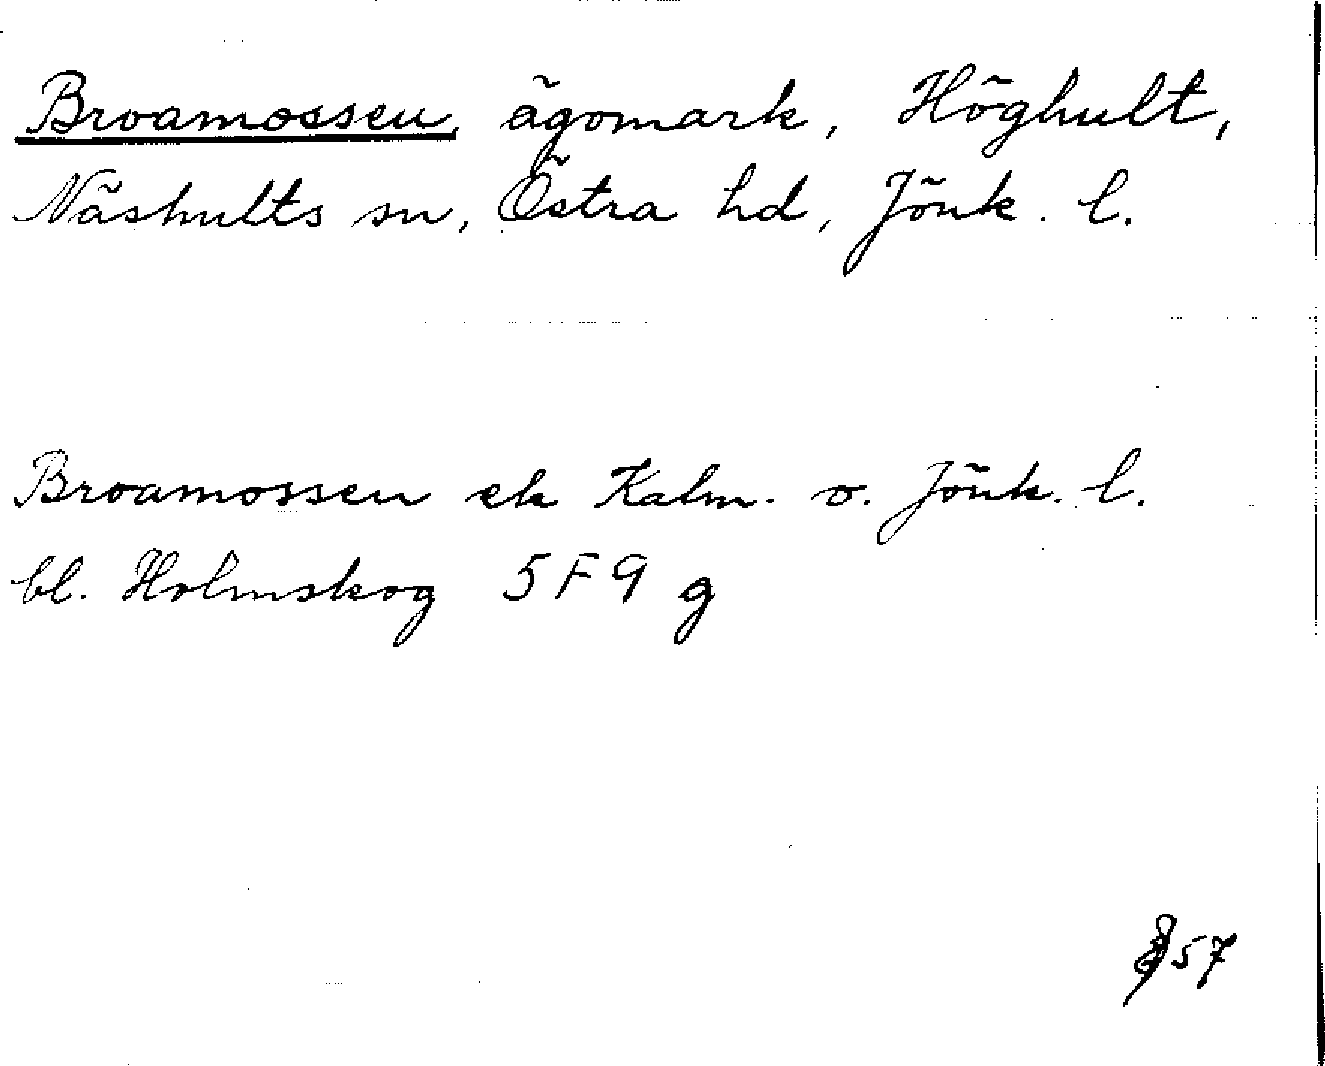 Broamossen, ägomark, Höghult,
Näshults sn, Östra hd, Jönk. l.
Broamossen ek Kalm. o. Jönk. l.
bl. Holmskog 5F9 g
57